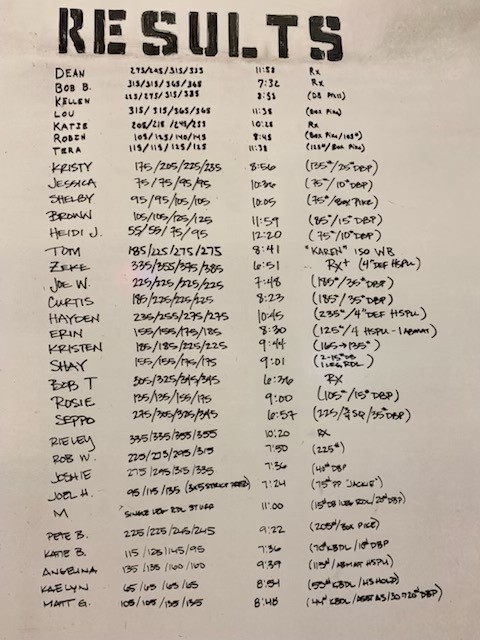 RESULTS
DEAN 275/295/315/335 11:58 Rx
BOB B. 315/315/365/365 7:32 Rx
KELLEN 225/275/315/335 8:53
LOU 315/315/365/365 11:35 (Box Pike)
KATIE 205/215/ 10:28 Rx
ROBIN 105/125/140/145 8:45 (Box Pike/105#)
TERA 115/115/125/125 11:38 (125#/Box Pike)
KRISTY 175/205/225/235 8:56 (135#/25#DBP)
JESSICA 75/75/95/95 10:36 (75#/10#DBP)
SHELBY 95/95/105/105 10:05 (75#/Box Pike)
BROWN 105/105/125/125 11:59 (85#/15#DBP)
HEIDI J. 55/55/75/95 12:20 (75#/10#DBP)
TOM 185/225/275/275 8:41 "KAREN" ISO WB
ZEKE 335/355/375/385 6:51 Rx+ (4"DEF HSPU)
JOE W. 225/225/225/225 7:48 (185#/35#DBP)
CURTIS 185/225/225/225 8:23 (185#/35#DBP)
HAYDEN 235/255/275/275 10:45 (235#/4"DEF HSPU)
ERIN 155/155/175/185 8:30 (125#/4 HSPU-1 ABMAT)
KRISTEN 185/185/225/225 9:44 (165→135#)
SHAY 155/155/175/175 9:01 (2-15#DB 1 LEG RDL)
BOB T 305/325/345/345 6:36 Rx
ROSIE 135/135/155/175 9:00 (105#/15#DBP)
SEPPO 275/305/325/345 6:57 (225/¾ SQ/35#DBP)
RIELEY 335/335/355/355 10:20 Rx
ROB W. 225/275/295/315 7:50 (225#)
JOSHIE 275/295/315/335 7:36 (40#DBP
JOEL H. 95/115/135 (3x5 STRICT PRESS) 7:24 (75# PP "JACKIE")
M SINGLE LEG RDL STUFF 11:00 (15#DB LEG RDL/20#DBP)
PETE B. 225/225/245/245 9:22 (205#/BOX PIKE)
KATIE B. 115/125/145/95 7:36 (70#KBDL/10#DBP
ANGELINA 135/135/160/160 9:39 (115#/ABMAT HSPU)
KAELYN 65/65/65/65 8:54 (53#KBDL/HS HOLD)
MATT G. 105/105/135/135 8:48 (44# KBDL/